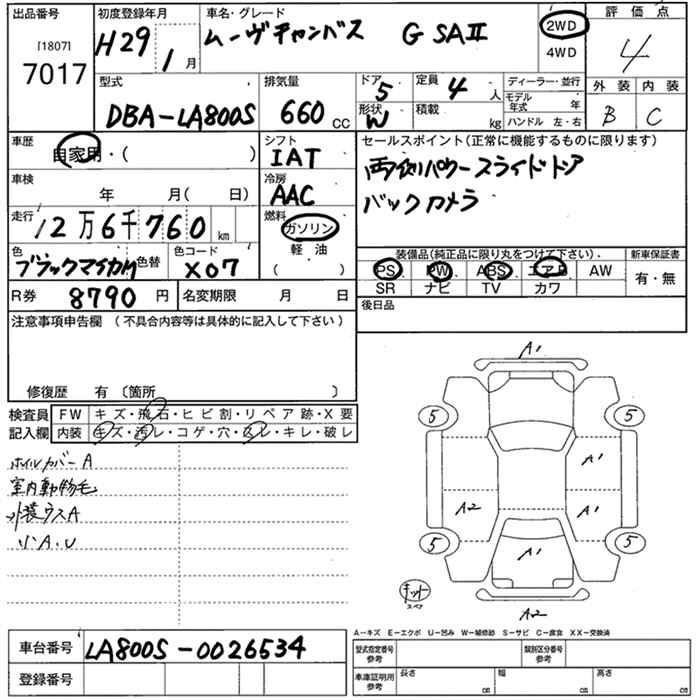 出品番号 初度登録年月 車名・グレード 評価点
[1807] 7017 H29 1月 ムーヴキャンバス G SAⅡ 2WD 4WD 4
型式 排気量 ドア 5 定員 4人 ディーラー・並行 外装 内装
DBA-LA800S 660cc 形状 W 積載 kg モデル年式 年 B C
ハンドル 左・右
車歴 自家用・( ) シフト IAT セールスポイント(正常に機能するものに限ります)
両側パワースライドドア
車検 年 月( 日) 冷房 AAC バックカメラ
走行 12万6千760km 燃料 ガソリン 軽油 ( )
色 ブラックマイカM 色替 色コード X07
装備品(純正品に限り丸をつけて下さい). 新車保証書
PS PW ABS エアB AW 有・無
SR ナビ TV カワ
R券 8790円 名変期限 月 日 後日品
注意事項申告欄 (不具合内容等は具体的に記入して下さい)
修復歴 有 〔箇所 〕
検査員記入欄 FW キズ・飛石・ヒビ割・リペア跡・X要
内装 キズ・汚レ・コゲ・穴・スレ・キレ・破レ
ホイルカバーA
室内動物毛
外装ウスA
リンA.U
A1
5 5
A1
A2 A1
5 A1 5
キット
スペア
A2
A-キズ E-エクボ U-凹み W-補修跡 S-サビ C-腐食 XX-交換済
車台番号 LA800S-0026534
登録番号
型式指定番号 参考 類別区分番号 参考
車庫証明用 参考 長さ cm 幅 cm 高さ cm